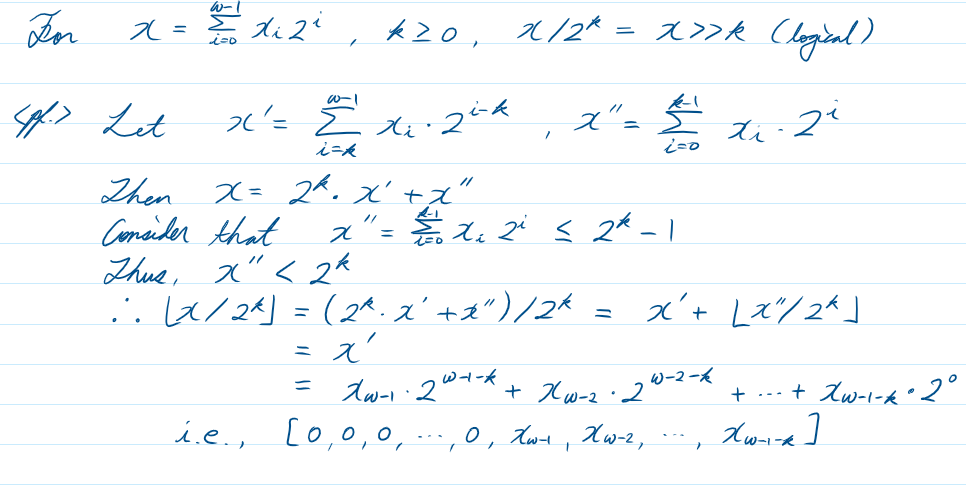 For x = Σ_{i=0}^{w-1} x_i 2^i , k ≥ 0 , x/2^k = x>>k (logical)
<pf.> Let x' = Σ_{i=k}^{w-1} x_i · 2^{i-k} , x'' = Σ_{i=0}^{k-1} x_i · 2^i
Then x = 2^k · x' + x''
Consider that x'' = Σ_{i=0}^{k-1} x_i 2^i ≤ 2^k - 1
Thus, x'' < 2^k
∴ ⌊x/2^k⌋ = (2^k · x' + x'')/2^k = x' + ⌊x''/2^k⌋
= x'
= x_{w-1} · 2^{w-1-k} + x_{w-2} · 2^{w-2-k} + ··· + x_{w-1-k} · 2^0
i.e., [0, 0, 0, ···, 0, x_{w-1}, x_{w-2}, ···, x_{w-1-k}]